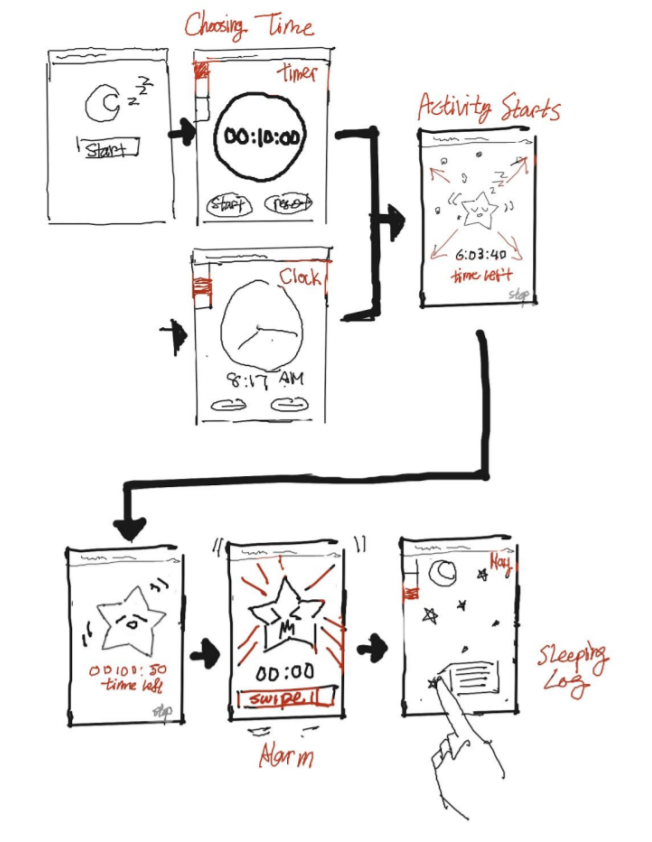 Choosing Time
zzz
Start
Timer
00:10:00
Start
reset
Activity Starts
zzz
6:03:40
time left
stop
Clock
8:17 AM
00:00:50
time left
stop
00:00
swipe!
Alarm
May
Sleeping
Log